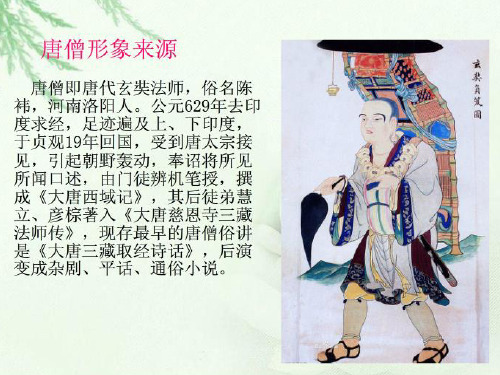 唐僧形象来源
唐僧即唐代玄奘法师，俗名陈
袆，河南洛阳人。公元629年去印
度求经，足迹遍及上、下印度，
于贞观19年回国，受到唐太宗接
见，引起朝野轰动，奉诏将所见
所闻口述，由门徒辨机笔授，撰
成《大唐西域记》，其后徒弟慧
立、彦棕著入《大唐慈恩寺三藏
法师传》，现存最早的唐僧俗讲
是《大唐三藏取经诗话》，后演
变成杂剧、平话、通俗小说。
玄奘負笈圖